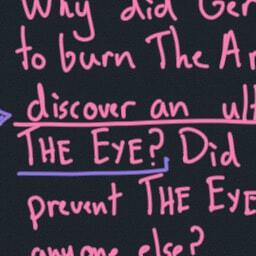 Why did Ger
to burn The Ar
discover an ult
THE EYE? Did
prevent THE EYE
anyone else?